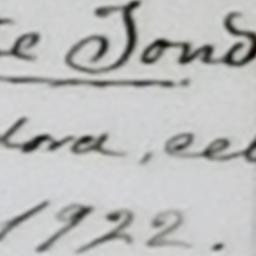 te Jond
lora, cel
1922.